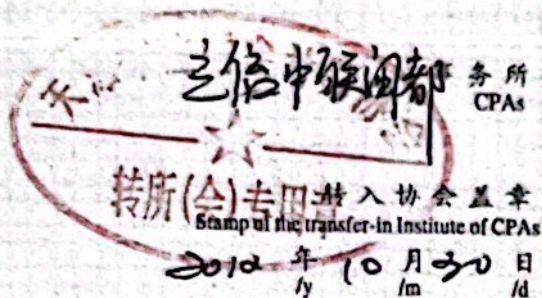 立信中联闽都 务所
CPAs
转所(会)专用章 转入协会盖章
Stamp of the transfer-in Institute of CPAs
2012 年 10 月 30 日
/y /m /d